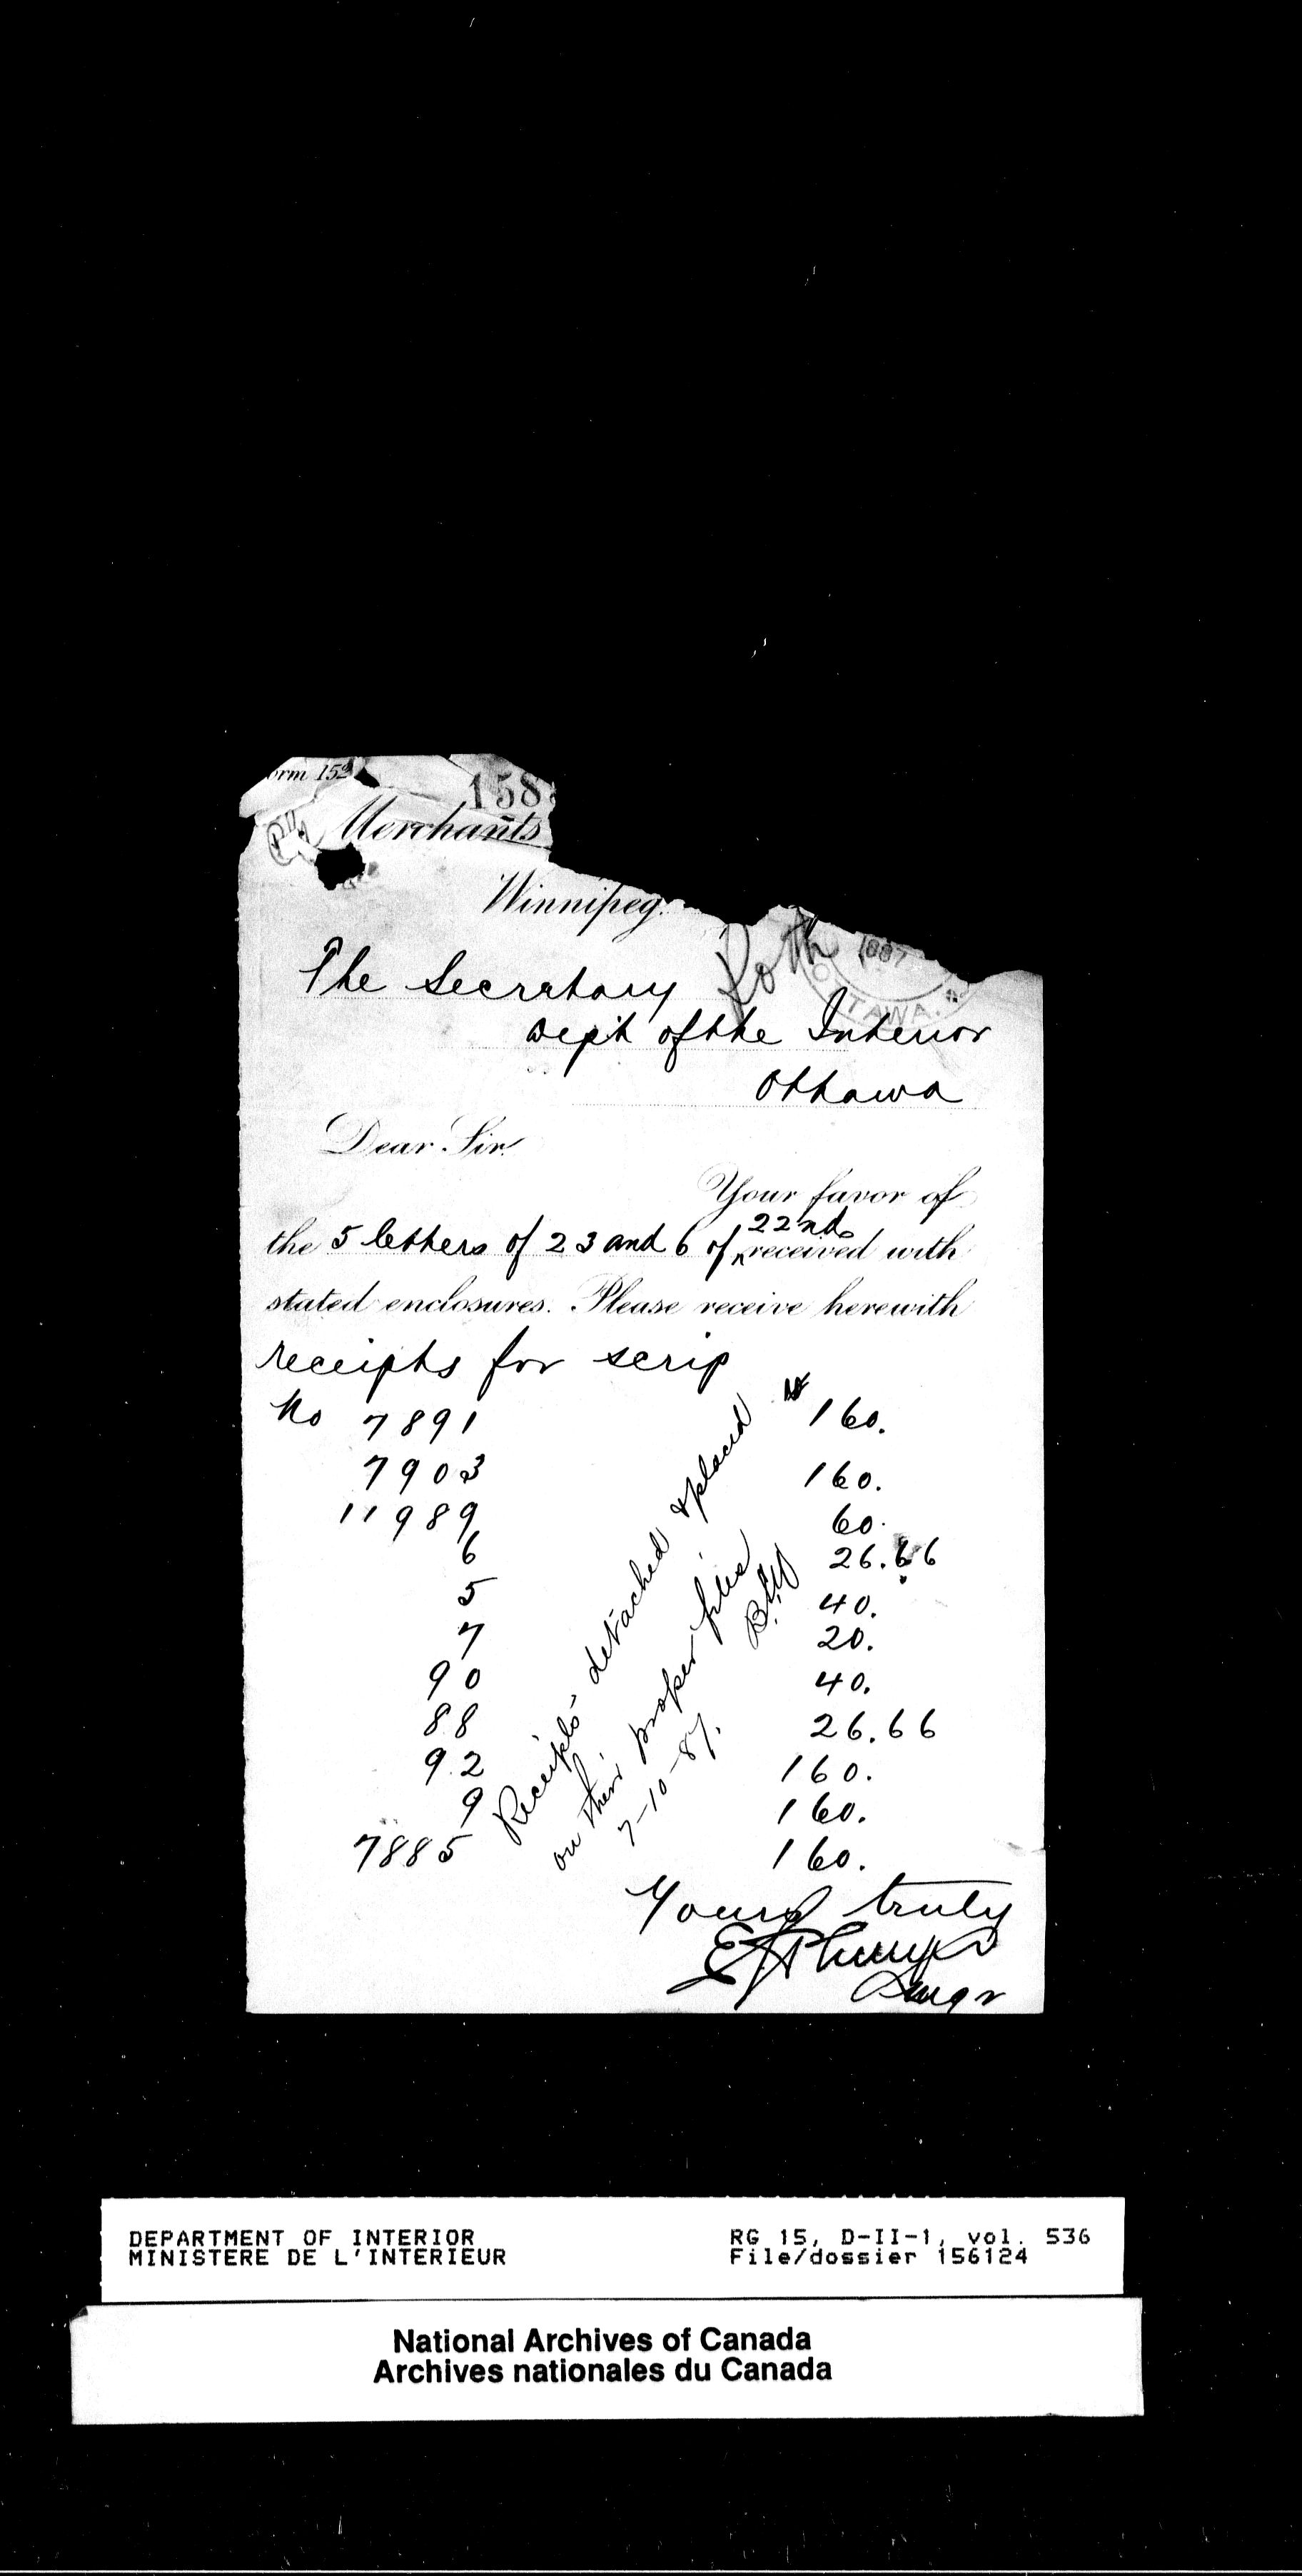 orm 152
158
Merchants
Winnipeg.
1887
OTTAWA.
The Secretary
Dept of the Interior
Ottawa
Dear Sir.
Your favor of
the 5 letters of 23 and 6 of 22nd received with
stated enclosures. Please receive herewith
receipts for scrip
No 7891 $ 160.
7903 160.
11989 60.
6 26.66
5 40.
7 20.
90 40.
88 26.66
92 160.
9 160.
7885 160.
Receipts detached & placed
on their proper files
7-10-87.
Yours truly
DEPARTMENT OF INTERIOR
MINISTERE DE L'INTERIEUR
RG 15, D-II-1, vol. 536
File/dossier 156124
National Archives of Canada
Archives nationales du Canada